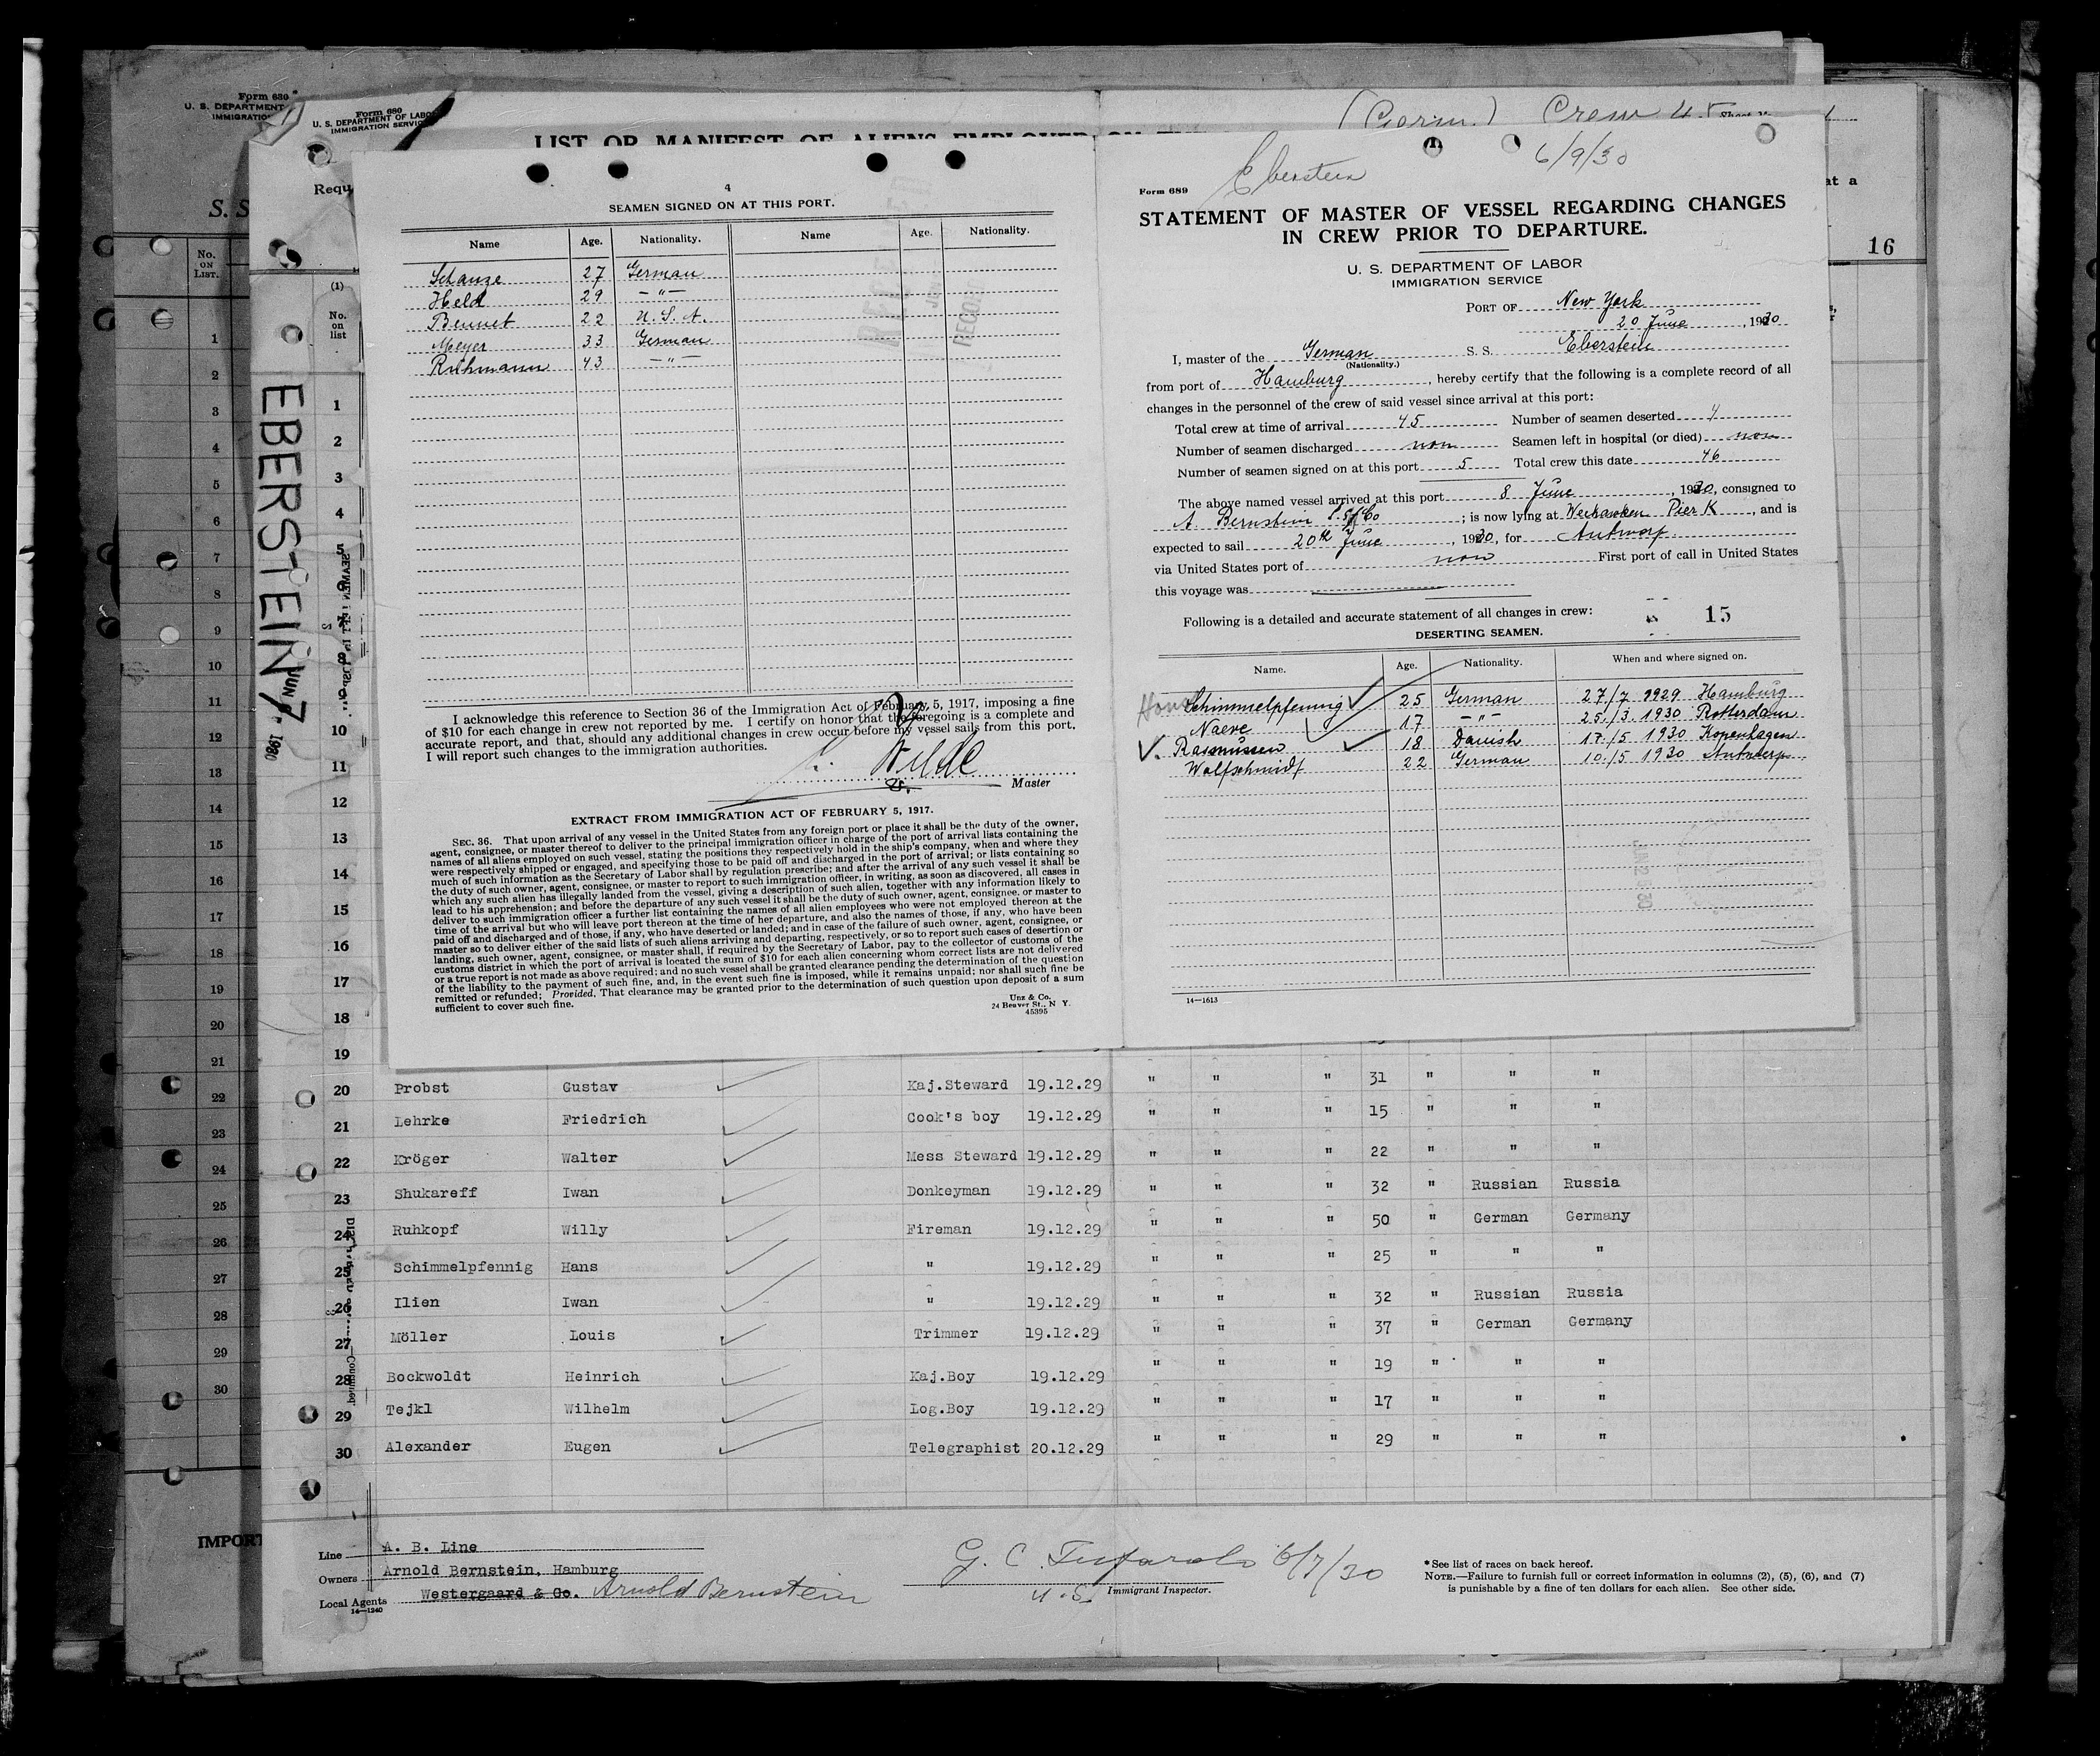 Form 630
U. S. DEPARTMENT
IMMIGRATIO
S. S
No.
ON
LIST.
1
2
3
4
5
6
7
8
9
10
11
12
13
14
15
16
17
18
19
20
21
22
23
24
25
26
27
28
29
30
IMPORT
Form 680
U. S. DEPARTMENT OF LABO
IMMIGRATION SERVIC
LIST OR MANIFEST OF ALIENS EMPLOYED ON
Crew 45
at a
16
Requ
(1)
No.
on
list
EBERSTEIN
JUN 7 1930
4
SEAMEN SIGNED ON AT THIS PORT.
Name Age. Nationality. Name Age. Nationality.
Schanze 27 German
Held 29 — " —
Bennet 22 U.S.A.
Meyer 33 German
Ruhmann 43 — " —
I acknowledge this reference to Section 36 of the Immigration Act of February 5, 1917, imposing a fine
of $10 for each change in crew not reported by me. I certify on honor that the foregoing is a complete and
accurate report, and that, should any additional changes in crew occur before my vessel sails from this port,
I will report such changes to the immigration authorities.
Wilde
Master
EXTRACT FROM IMMIGRATION ACT OF FEBRUARY 5, 1917.
SEC. 36. That upon arrival of any vessel in the United States from any foreign port or place it shall be the duty of the owner,
agent, consignee, or master thereof to deliver to the principal immigration officer in charge of the port of arrival lists containing the
names of all aliens employed on such vessel, stating the positions they respectively hold in the ship's company, when and where they
were respectively shipped or engaged, and specifying those to be paid off and discharged in the port of arrival; or lists containing so
much of such information as the Secretary of Labor shall by regulation prescribe; and after the arrival of any such vessel it shall be
the duty of such owner, agent, consignee, or master to report to such immigration officer, in writing, as soon as discovered, all cases in
which any such alien has illegally landed from the vessel, giving a description of such alien, together with any information likely to
lead to his apprehension; and before the departure of any such vessel it shall be the duty of such owner, agent, consignee. or master to
deliver to such immigration officer a further list containing the names of all alien employees who were not employed thereon at the
time of the arrival but who will leave port thereon at the time of her departure, and also the names of those, if any, who have been
paid off and discharged and of those, if any, who have deserted or landed; and in case of the failure of such owner, agent, consignee, or
master so to deliver either of the said lists of such aliens arriving and departing, respectively, or so to report such cases of desertion or
landing, such owner, agent, consignee, or master shall, if required by the Secretary of Labor, pay to the collector of customs of the
customs district in which the port of arrival is located the sum of $10 for each alien concerning whom correct lists are not delivered
or a true report is not made as above required; and no such vessel shall be granted clearance pending the determination of the question
of the liability to the payment of such fine, and, in the event such fine is imposed, while it remains unpaid; nor shall such fine be
remitted or refunded; Provided, That clearance may be granted prior to the determination of such question upon deposit of a sum
sufficient to cover such fine.
Unz & Co.
24 Beaver St., N Y.
45395
Eberstein 6/9/30
Form 689
STATEMENT OF MASTER OF VESSEL REGARDING CHANGES
IN CREW PRIOR TO DEPARTURE.
U. S. DEPARTMENT OF LABOR
IMMIGRATION SERVICE
PORT OF New York
20 June, 1930
I, master of the German S. S. Eberstein
(Nationality.)
from port of Hamburg, hereby certify that the following is a complete record of all
changes in the personnel of the crew of said vessel since arrival at this port:
Total crew at time of arrival 45 Number of seamen deserted 4
Number of seamen discharged non Seamen left in hospital (or died) non
Number of seamen signed on at this port 5 Total crew this date 46
The above named vessel arrived at this port 8 June, 1930, consigned to
A. Bernstein; is now lying at Weehawken Pier K, and is
expected to sail 20th June, 1930, for Antwerp.
via United States port of non First port of call in United States
this voyage was
Following is a detailed and accurate statement of all changes in crew:
15
DESERTING SEAMEN.
Name. Age. Nationality. When and where signed on.
Schimmelpfennig 25 German 27/7 1929 Hamburg
Naeve 17 — " — 25./3. 1930 Rotterdam
Rasmussen 18 Danish 17./5 1930 Kopenhagen
Wolfschmidt 22 German 10./5 1930 Antwerp
14—1613
1
2
3
4
5
10
11
12
13
14
15
16
17
18
19
20 Probst Gustav Kaj.Steward 19.12.29 " " " 31 " " "
21 Lehrke Friedrich Cook's boy 19.12.29 " " " 15 " " "
22 Kröger Walter Mess Steward 19.12.29 " " " 22 " " "
23 Shukareff Iwan Donkeyman 19.12.29 " " " 32 " Russian Russia
24 Ruhkopf Willy Fireman 19.12.29 " " " 50 " German Germany
25 Schimmelpfennig Hans " 19.12.29 " " " 25 " " "
26 Ilien Iwan " 19.12.29 " " " 32 " Russian Russia
27 Möller Louis Trimmer 19.12.29 " " " 37 " German Germany
28 Bockwoldt Heinrich Kaj.Boy 19.12.29 " " " 19 " " "
29 Tejkl Wilhelm Log.Boy 19.12.29 " " " 17 " " "
30 Alexander Eugen Telegraphist 20.12.29 " " " 29 " " "
Line A. B. Line
Owners Arnold Bernstein, Hamburg
Local Agents Westergaard & Co. Arnold Bernstein
14—1240
G. C. 6/7/30
Immigrant Inspector.
* See list of races on back hereof.
NOTE.—Failure to furnish full or correct information in columns (2), (5), (6), and (7)
is punishable by a fine of ten dollars for each alien. See other side.